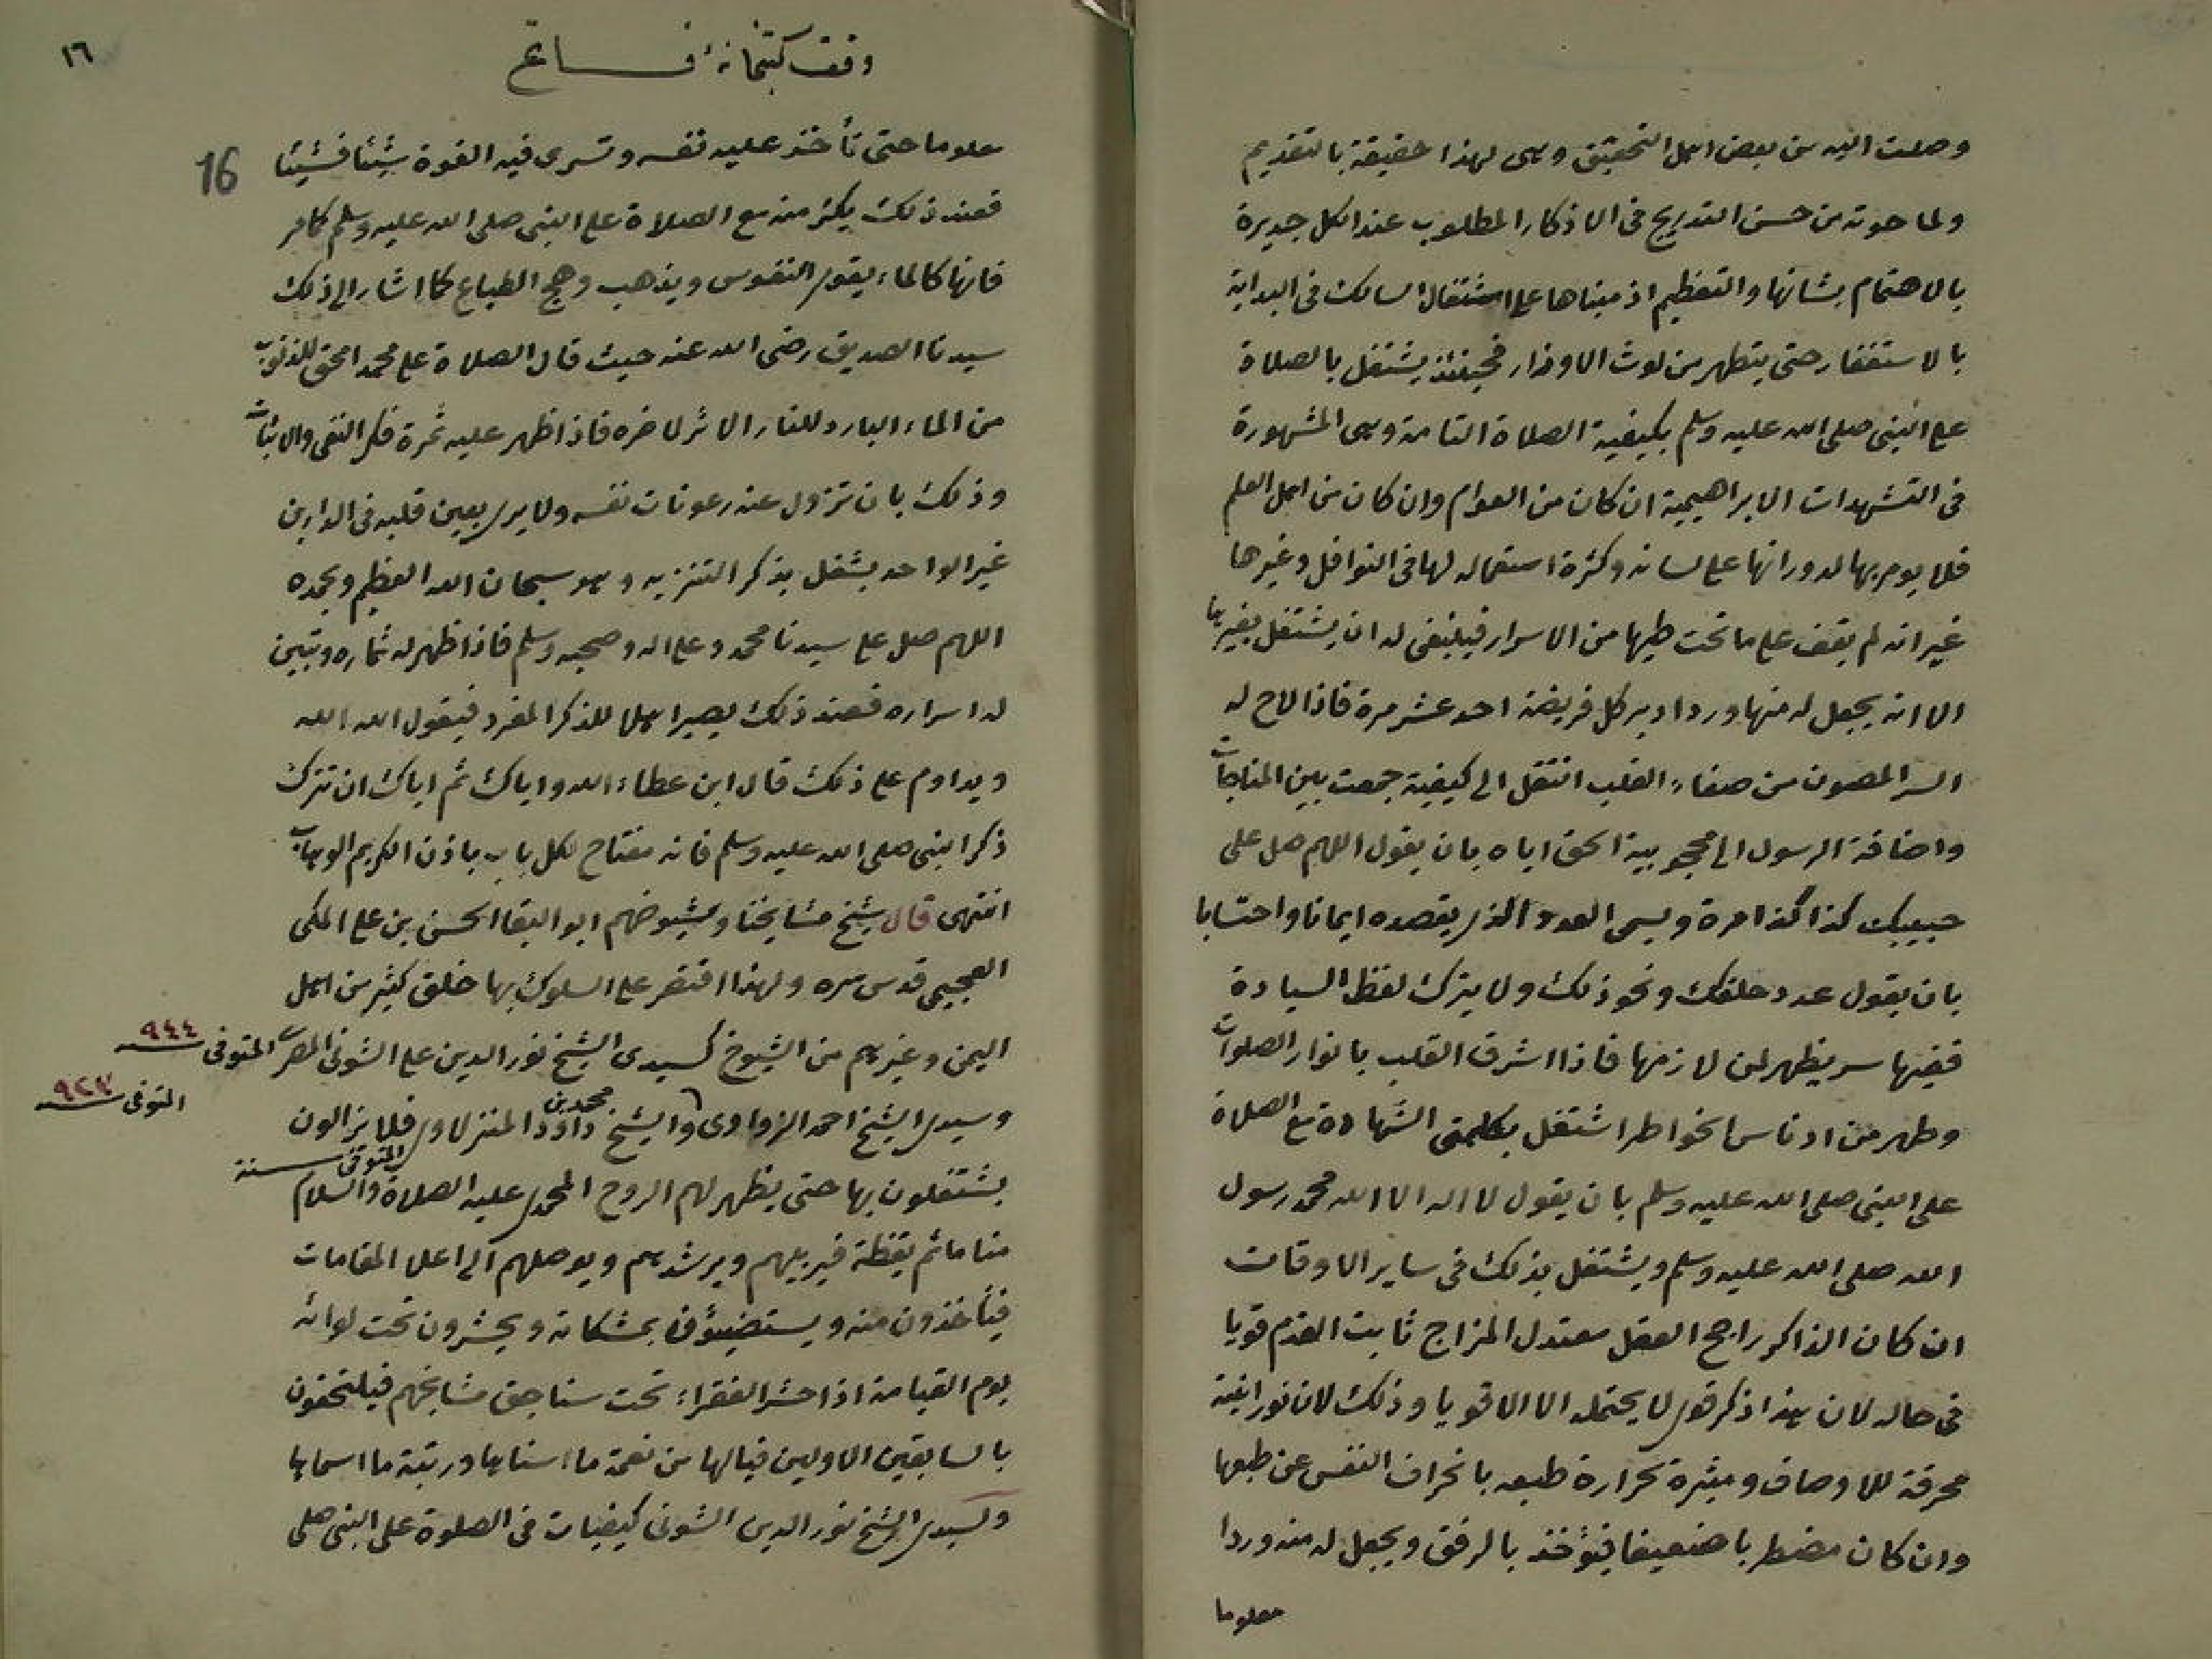 وصلت اليه من بعض اهل التحقيق وهى لهذا حقيقة بالتقديم
ولما حوته من حسن التدريج فى الاذكار المطلوب عند الكل جديرة
بالاهتمام بشانها والتعظيم اذ مبناها على اشتغال السالك فى البداية
بالاستغفار حتى يتطهر من لوث الاوزار فحينئذ يشتغل بالصلاة
على النبى صلى الله عليه وسلم بكيفية الصلاة التامة وهى المشهورة
فى التشهدات الابراهيمية ان كان من العوام وان كان من اهل العلم
فلا يومر بها لدورانها على لسانه وكثرة استعماله لها فى النوافل وغيرها
غير انه لم يقف على ما تحت طيها من الاسرار فينبغى له ان يشتغل بغيرها
الا انه يجعل له منها وردا دبر كل فريضة احد عشر مرة فاذا لاح له
السر المصون من صفاء القلب انتقل الى كيفية جمعت بين المناجات
واضافة الرسول الى محبوبية الحق اياه بان يقول اللهم صل على
حبيبك كذا كذا مرة ويسمى العدد الذى يقصده ايمانا واحتسابا
بان يقول عدد خلقك ونحو ذلك ولا يترك لفظ السيادة
ففيها سر يظهر لمن لازمها فاذا اشرق القلب بانوار الصلوات
وطهر من ادناس الخواطر اشتغل بكلمتى الشهادة مع الصلاة
على النبى صلى الله عليه وسلم بان يقول لا اله الا الله محمد رسول
الله صلى الله عليه وسلم ويشتغل بذلك فى ساير الاوقات
ان كان الذاكر راجح العقل معتدل المزاج ثابت القدم قويا
فى حاله لان هذا ذكر قوى لا يحتمله الا الاقويا وذلك لان نورانيته
محرقة للاوصاف ومثيرة لحرارة طبعه بانحراف النفس عن طبعها
وان كان مضطربا ضعيفا فيؤخذ بالرفق ويجعل له منه وردا
معلوما
١٦
وقف كتبخانۀ فاتح
16
معلوما حتى تأخذ عليه نفسه وتسرى فيه القوة شيئا فشيئا
فعند ذلك يكثر منه مع الصلاة على النبى صلى الله عليه وسلم كما مر
فانها كالماء يقوى النفوس ويذهب وهج الطباع كما اشار الى ذلك
سيدنا الصديق رضى الله عنه حيث قال الصلاة على محمد امحق للذنوب
من الماء البارد للنار الاثر لاخره فاذا ظهر عليه ثمرة ذكر النفى والاثبات
وذلك بان تزول عنه رعونات نفسه ولا يرى بعين قلبه فى الدارين
غير الواحد يشغل بذكر التنزيه وهو سبحان الله العظيم وبحمده
اللهم صل على سيدنا محمد وعلى اله وصحبه وسلم فاذا ظهر له ثماره وتبين
له اسراره فعند ذلك يصير اهلا للذكر المفرد فيقول الله الله
ويداوم على ذلك قال ابن عطاء الله واياك ثم اياك ان تترك
ذكر النبى صلى الله عليه وسلم فانه مفتاح لكل باب باذن الكريم الوهاب
انتهى قال شيخ مشايخنا وشيوخهم ابو البقا الحسن بن على المكى
العجيمى قدس سره ولهذا اقتصر على السلوك بها خلق كثير من اهل
اليمن وغيرهم من الشيوخ كسيدى الشيخ نور الدين على الشونى المصرى المتوفى ٩٤٤
وسيدى الشيخ احمد الزواوى والشيخ محمد بن داود المنزلاوى فلا يزالون
المتوفى ٩٢٣
المتوفى سنة
يشتغلون بها حتى يظهر لهم الروح المحمدى عليه الصلاة والسلام
مناما ثم يقظة فيربيهم ويرشدهم ويوصلهم الى اعلا المقامات
فيأخذون منه ويستضيؤن بمشكاته ويحشرون تحت لوائه
يوم القيامة اذا حشر الفقراء تحت سناجق مشايخهم فيلتحقون
بالسابقين الاولين فيالها من نعمة ما اسناها ورتبة ما اسماها
ولسيدى الشيخ نور الدين الشونى كيفيات فى الصلوة على النبى صلى